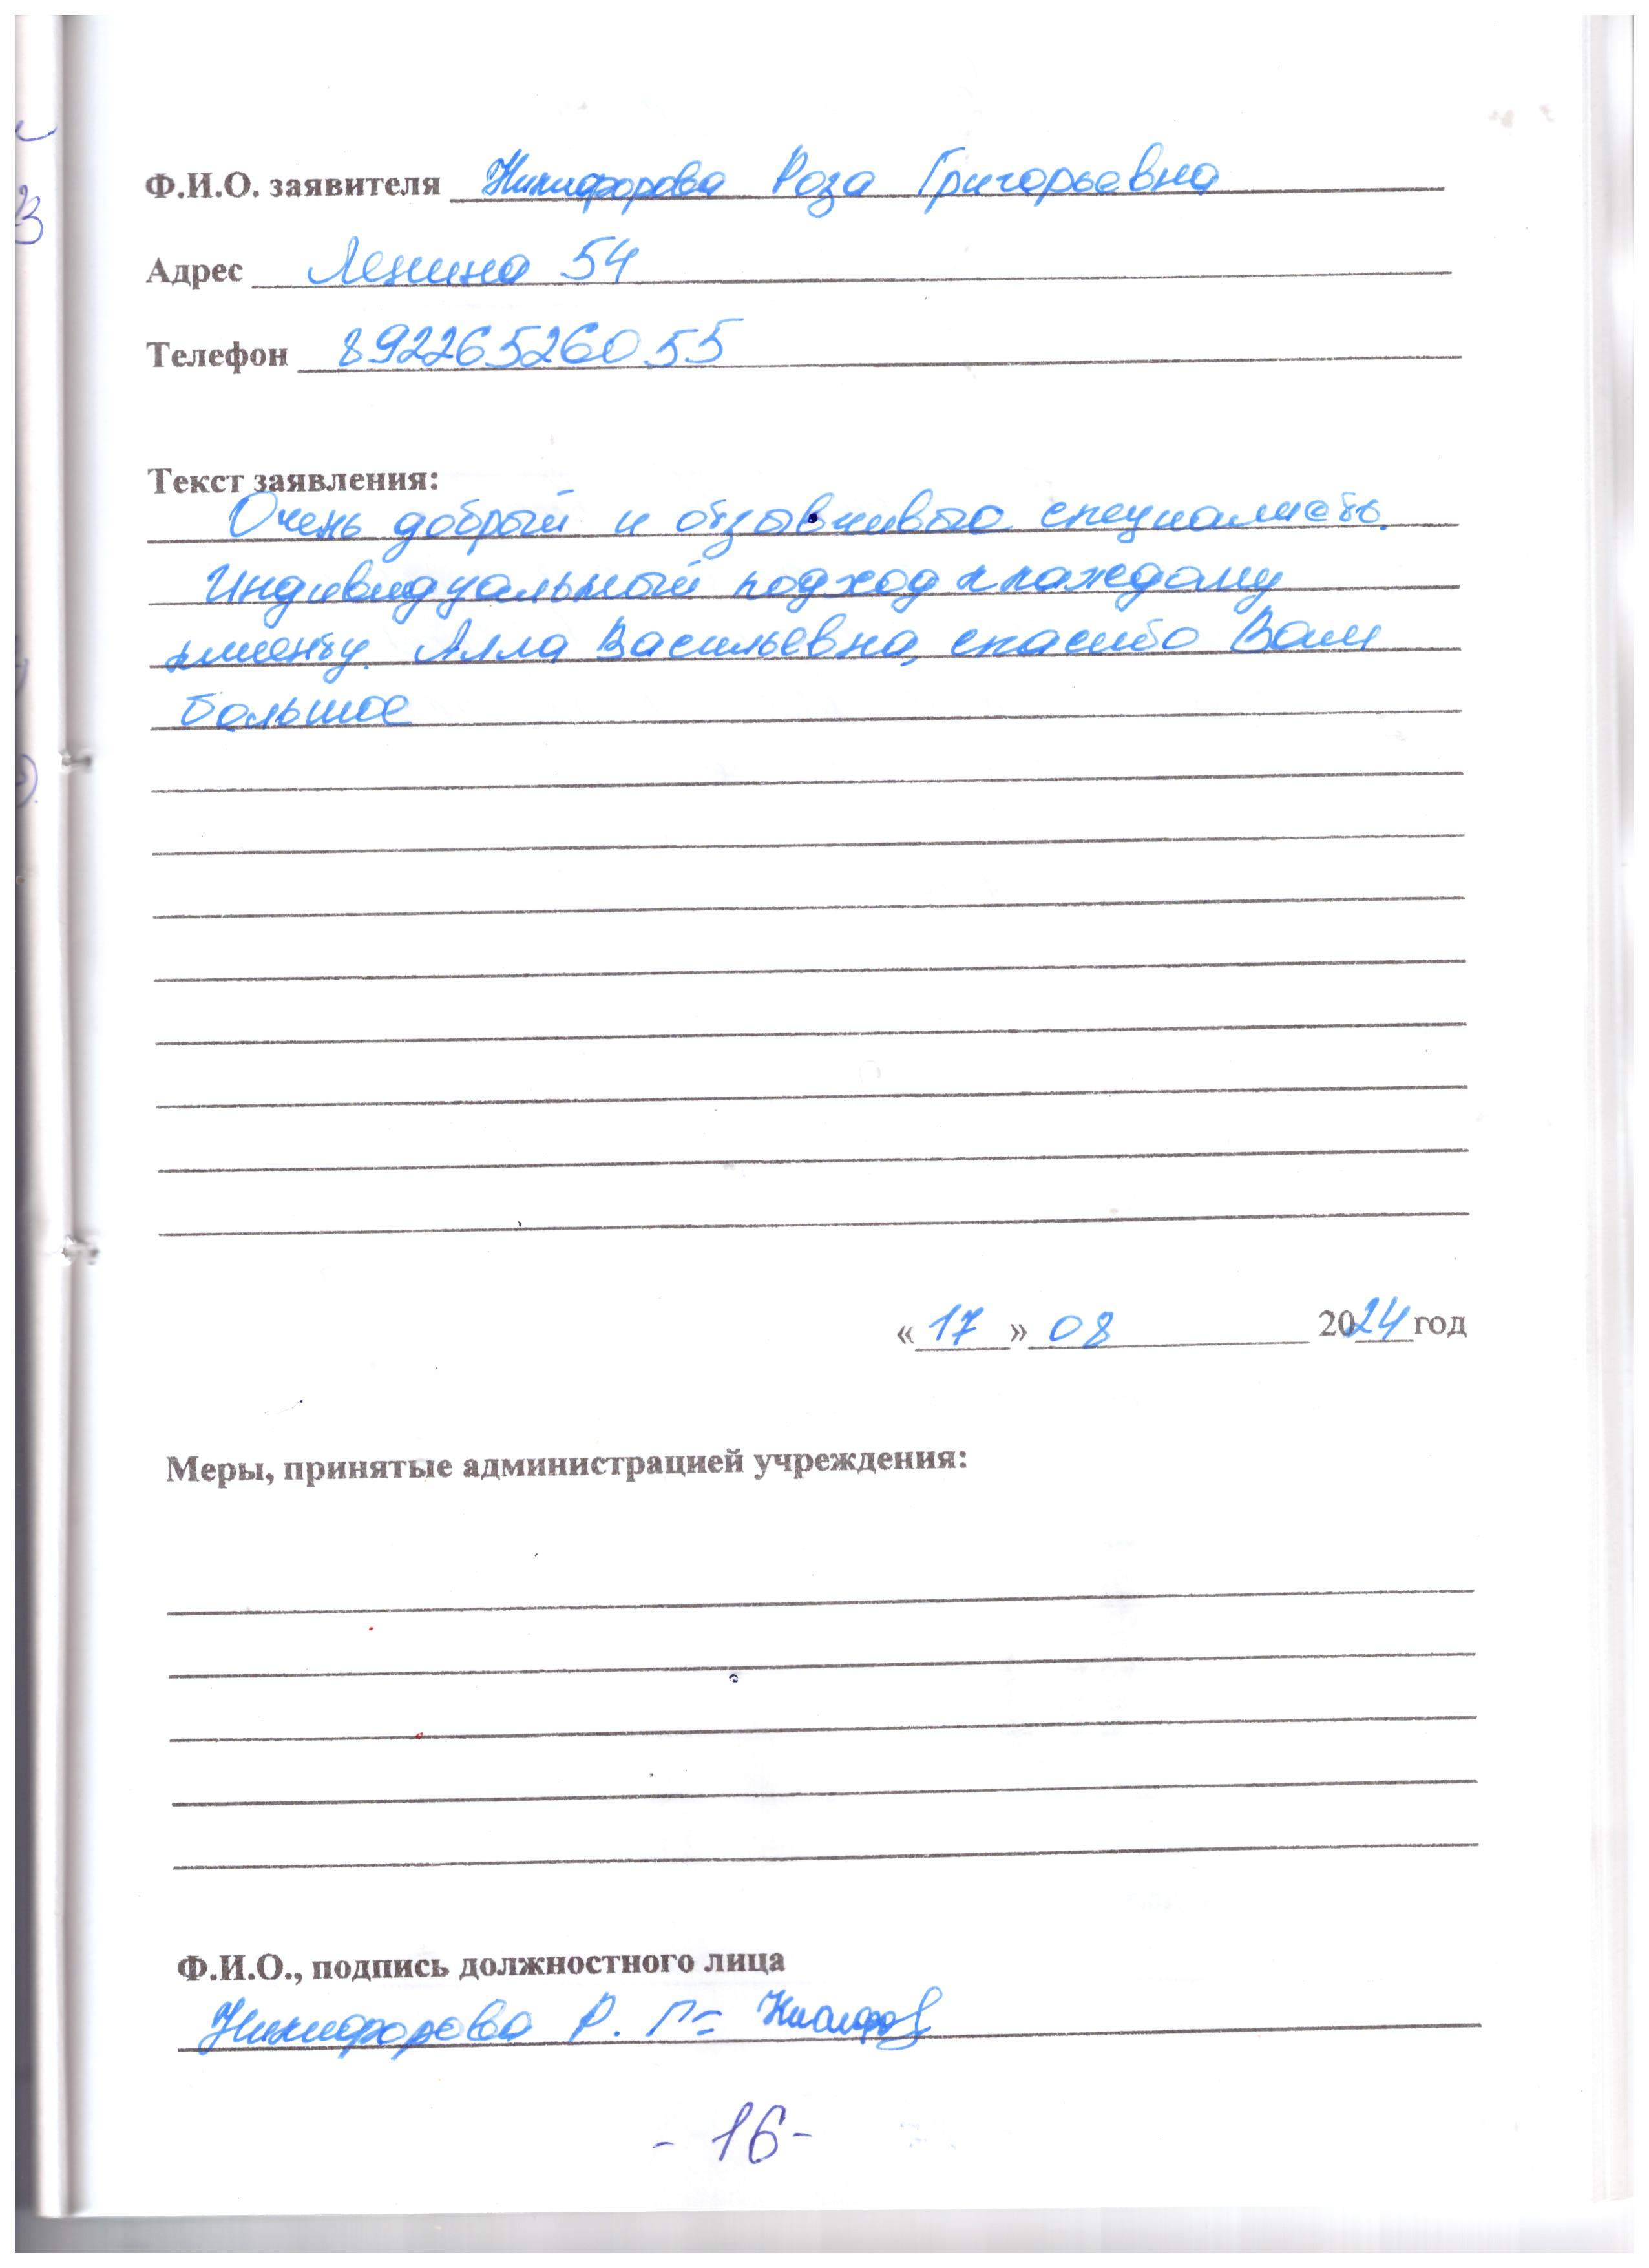 Ф.И.О. заявителя Никифорова Роза Григорьевна
Адрес Ленина 54
Телефон 89226526055
Текст заявления:
Очень добрый и отзывчивый специалист.
Индивидуальный подход к каждому
клиенту. Алла Васильевна, спасибо Вам
большое
«17» 08 2024 год
Меры, принятые администрацией учреждения:
Ф.И.О., подпись должностного лица
Никифорова Р. Г.
- 16 -